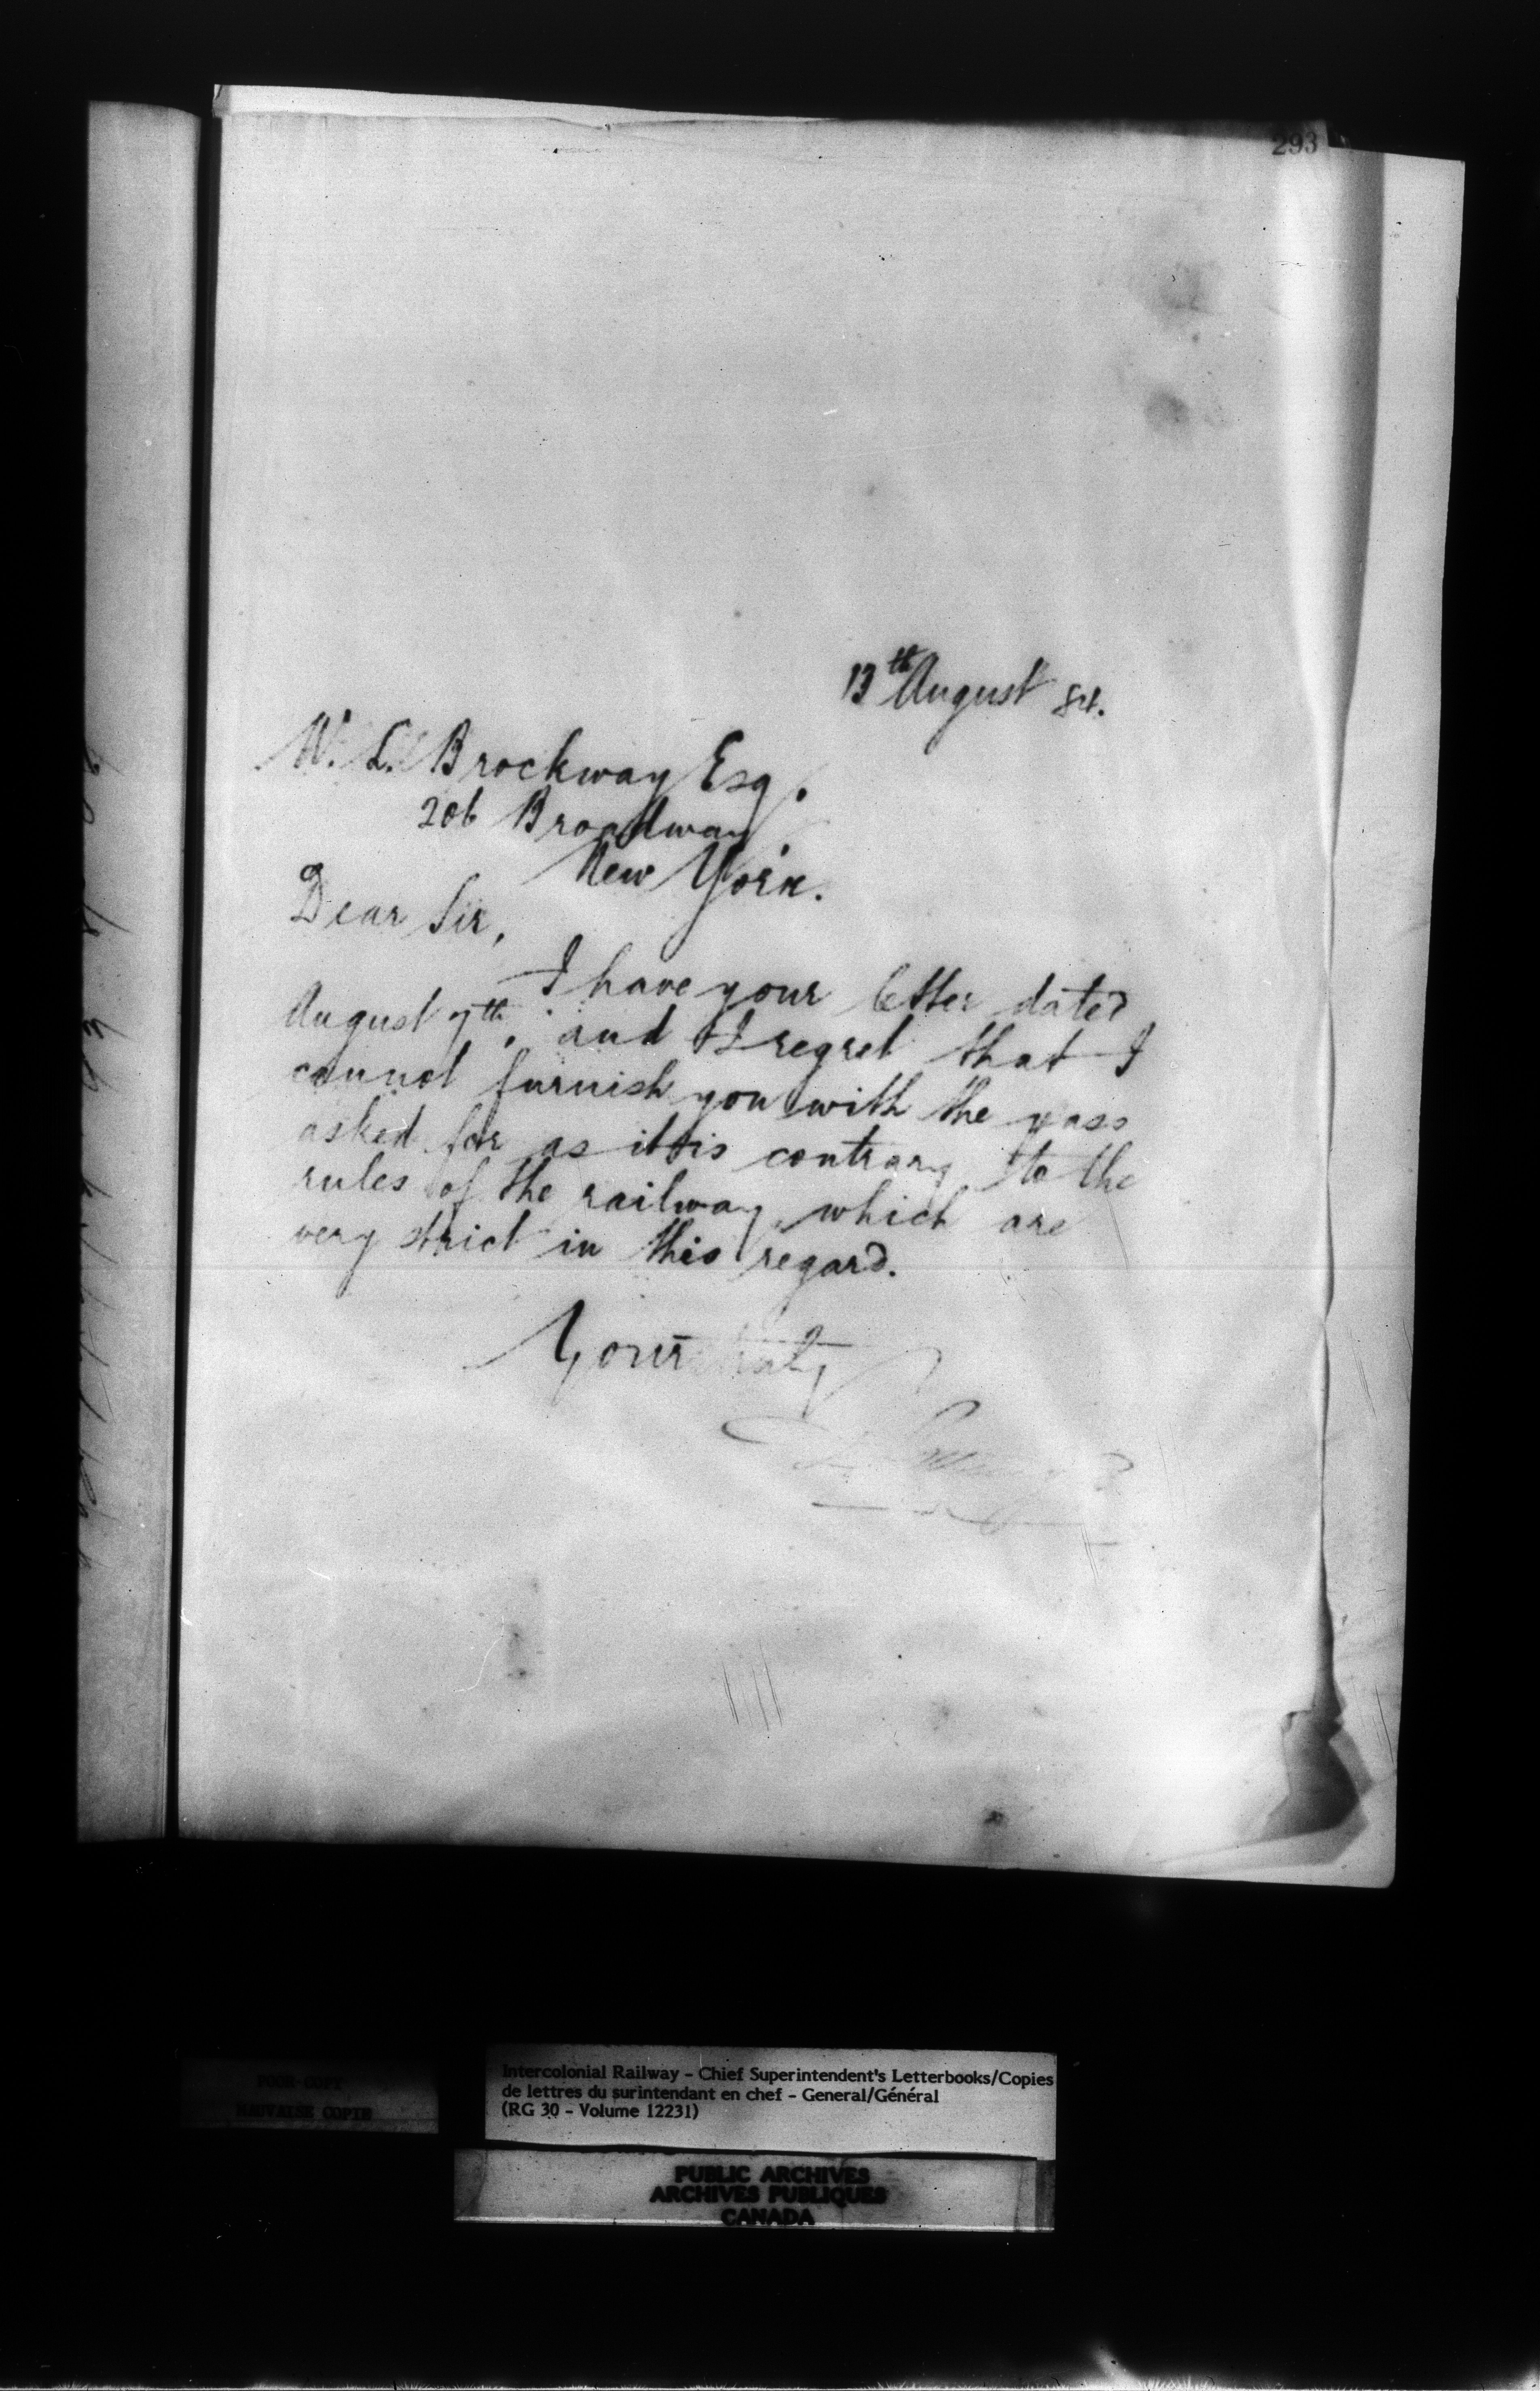 293
13th August 84.
W. L. Brockway Esq.
206 Broadway
New York.
Dear Sir,
I have your letter dated
August 7th, and I regret that I
cannot furnish you with the pass
asked for as it is contrary to the
rules of the railway, which are
very strict in this regard.
Yours truly
POOR COPY
MAUVAISE COPIE
Intercolonial Railway - Chief Superintendent's Letterbooks/Copies
de lettres du surintendant en chef - General/Général
(RG 30 - Volume 12231)
PUBLIC ARCHIVES
ARCHIVES PUBLIQUES
CANADA